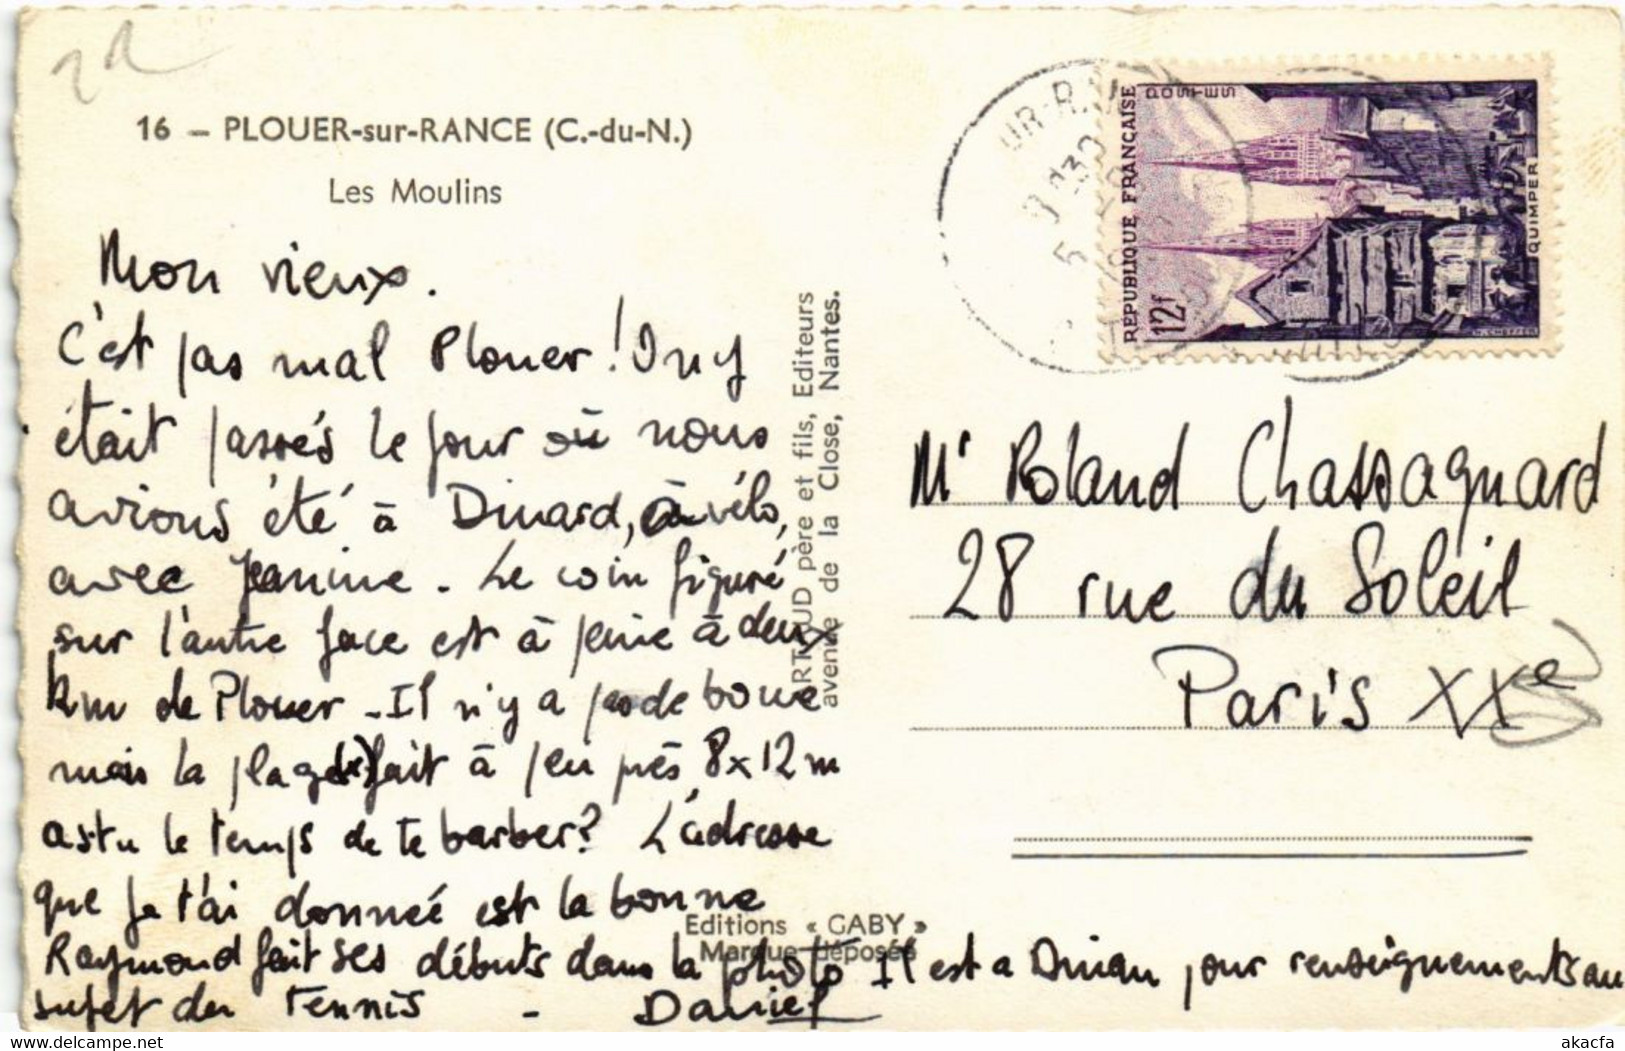 16 – PLOUER-sur-RANCE (C.-du-N.)
Les Moulins
Mon vieux.
C'est pas mal Plouer! On y
était passés le jour où nous
avions été à Dinard, à vélo,
avec Jeanine - Le coin figuré
sur l'autre face est à peine à deux
km de Plouer - Il n'y a pas de boue
mais la plage fait à peu près 8x12m
as tu le temps de te barber? L'adresse
que je t'ai donnée est la bonne
Raymond fait ses débuts dans la photo Il est a Dinan pour renseignements au
sujet du tennis - Daniel
ARTAUD père et fils, Editeurs
avenue de la Close, Nantes.
Editions « GABY »
Marque déposée
UR-R
POSTES
REPUBLIQUE FRANÇAISE
12f
QUIMPER
Mr Roland Chassagnard
28 rue du Soleil
Paris XXe
www.delcampe.net
akacfa